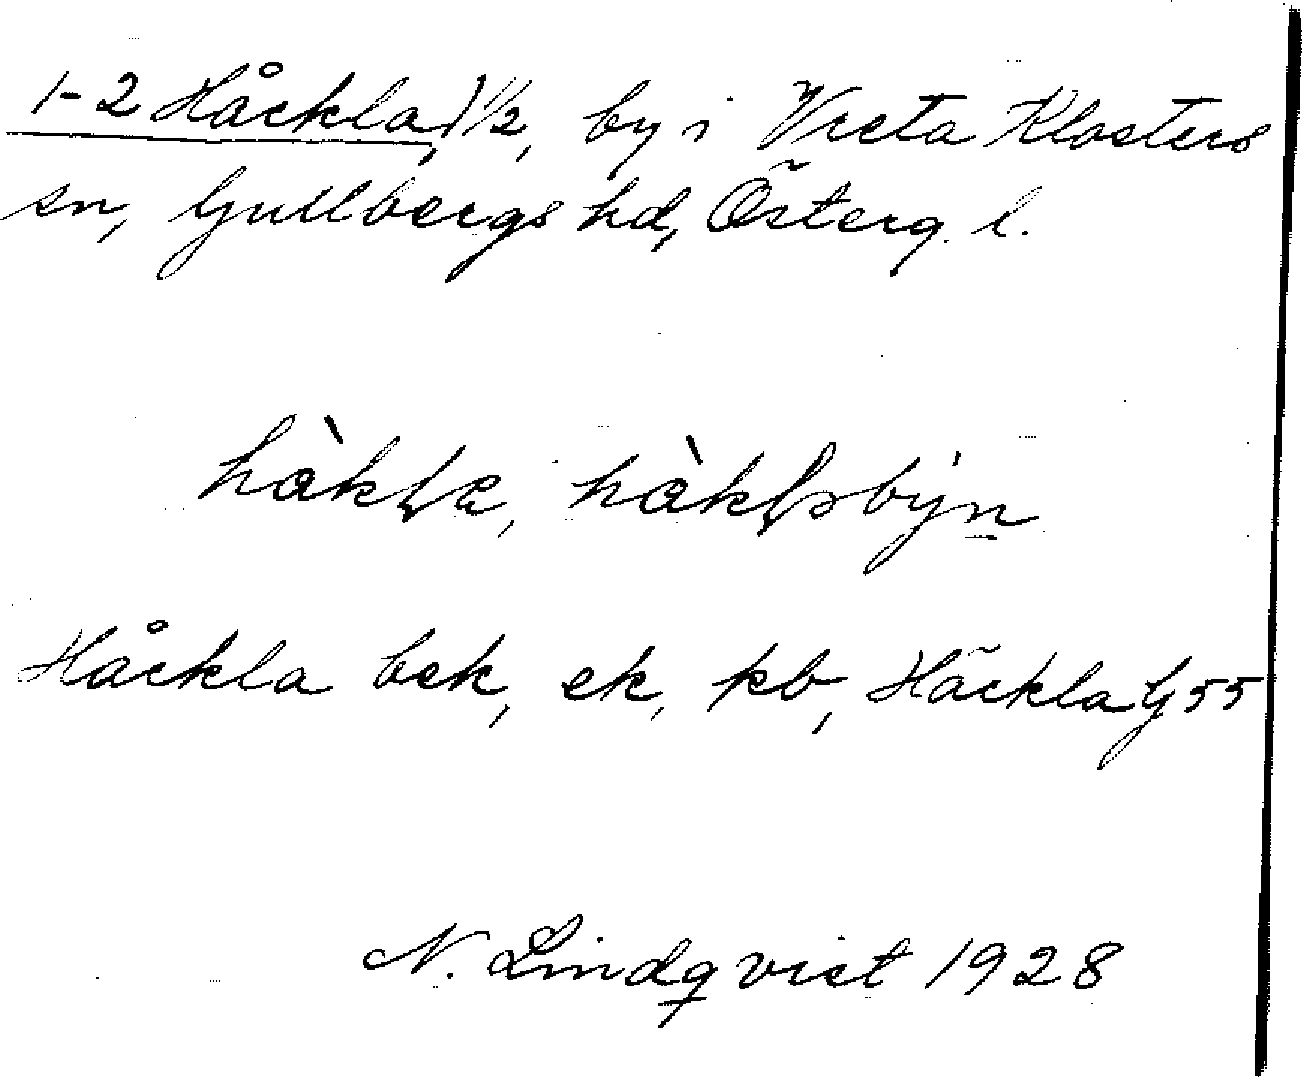 1-2 Håckla, 1 1/2, by i Vreta Klosters
sn, Gullbergs hd, Österg. l.
hàkla, hàklsbýn
Håckla bek, ek, kb, Häckla G 55
N. Lindqvist 1928